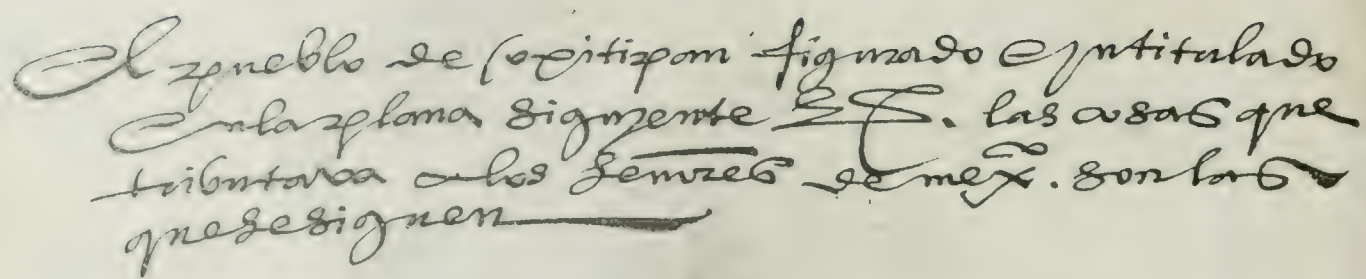 El pueblo de (oxitipan figurado E yntitulado
En la plana siguyente &. las cosas que
tributava a los señores de mexº. son las
que se siguen